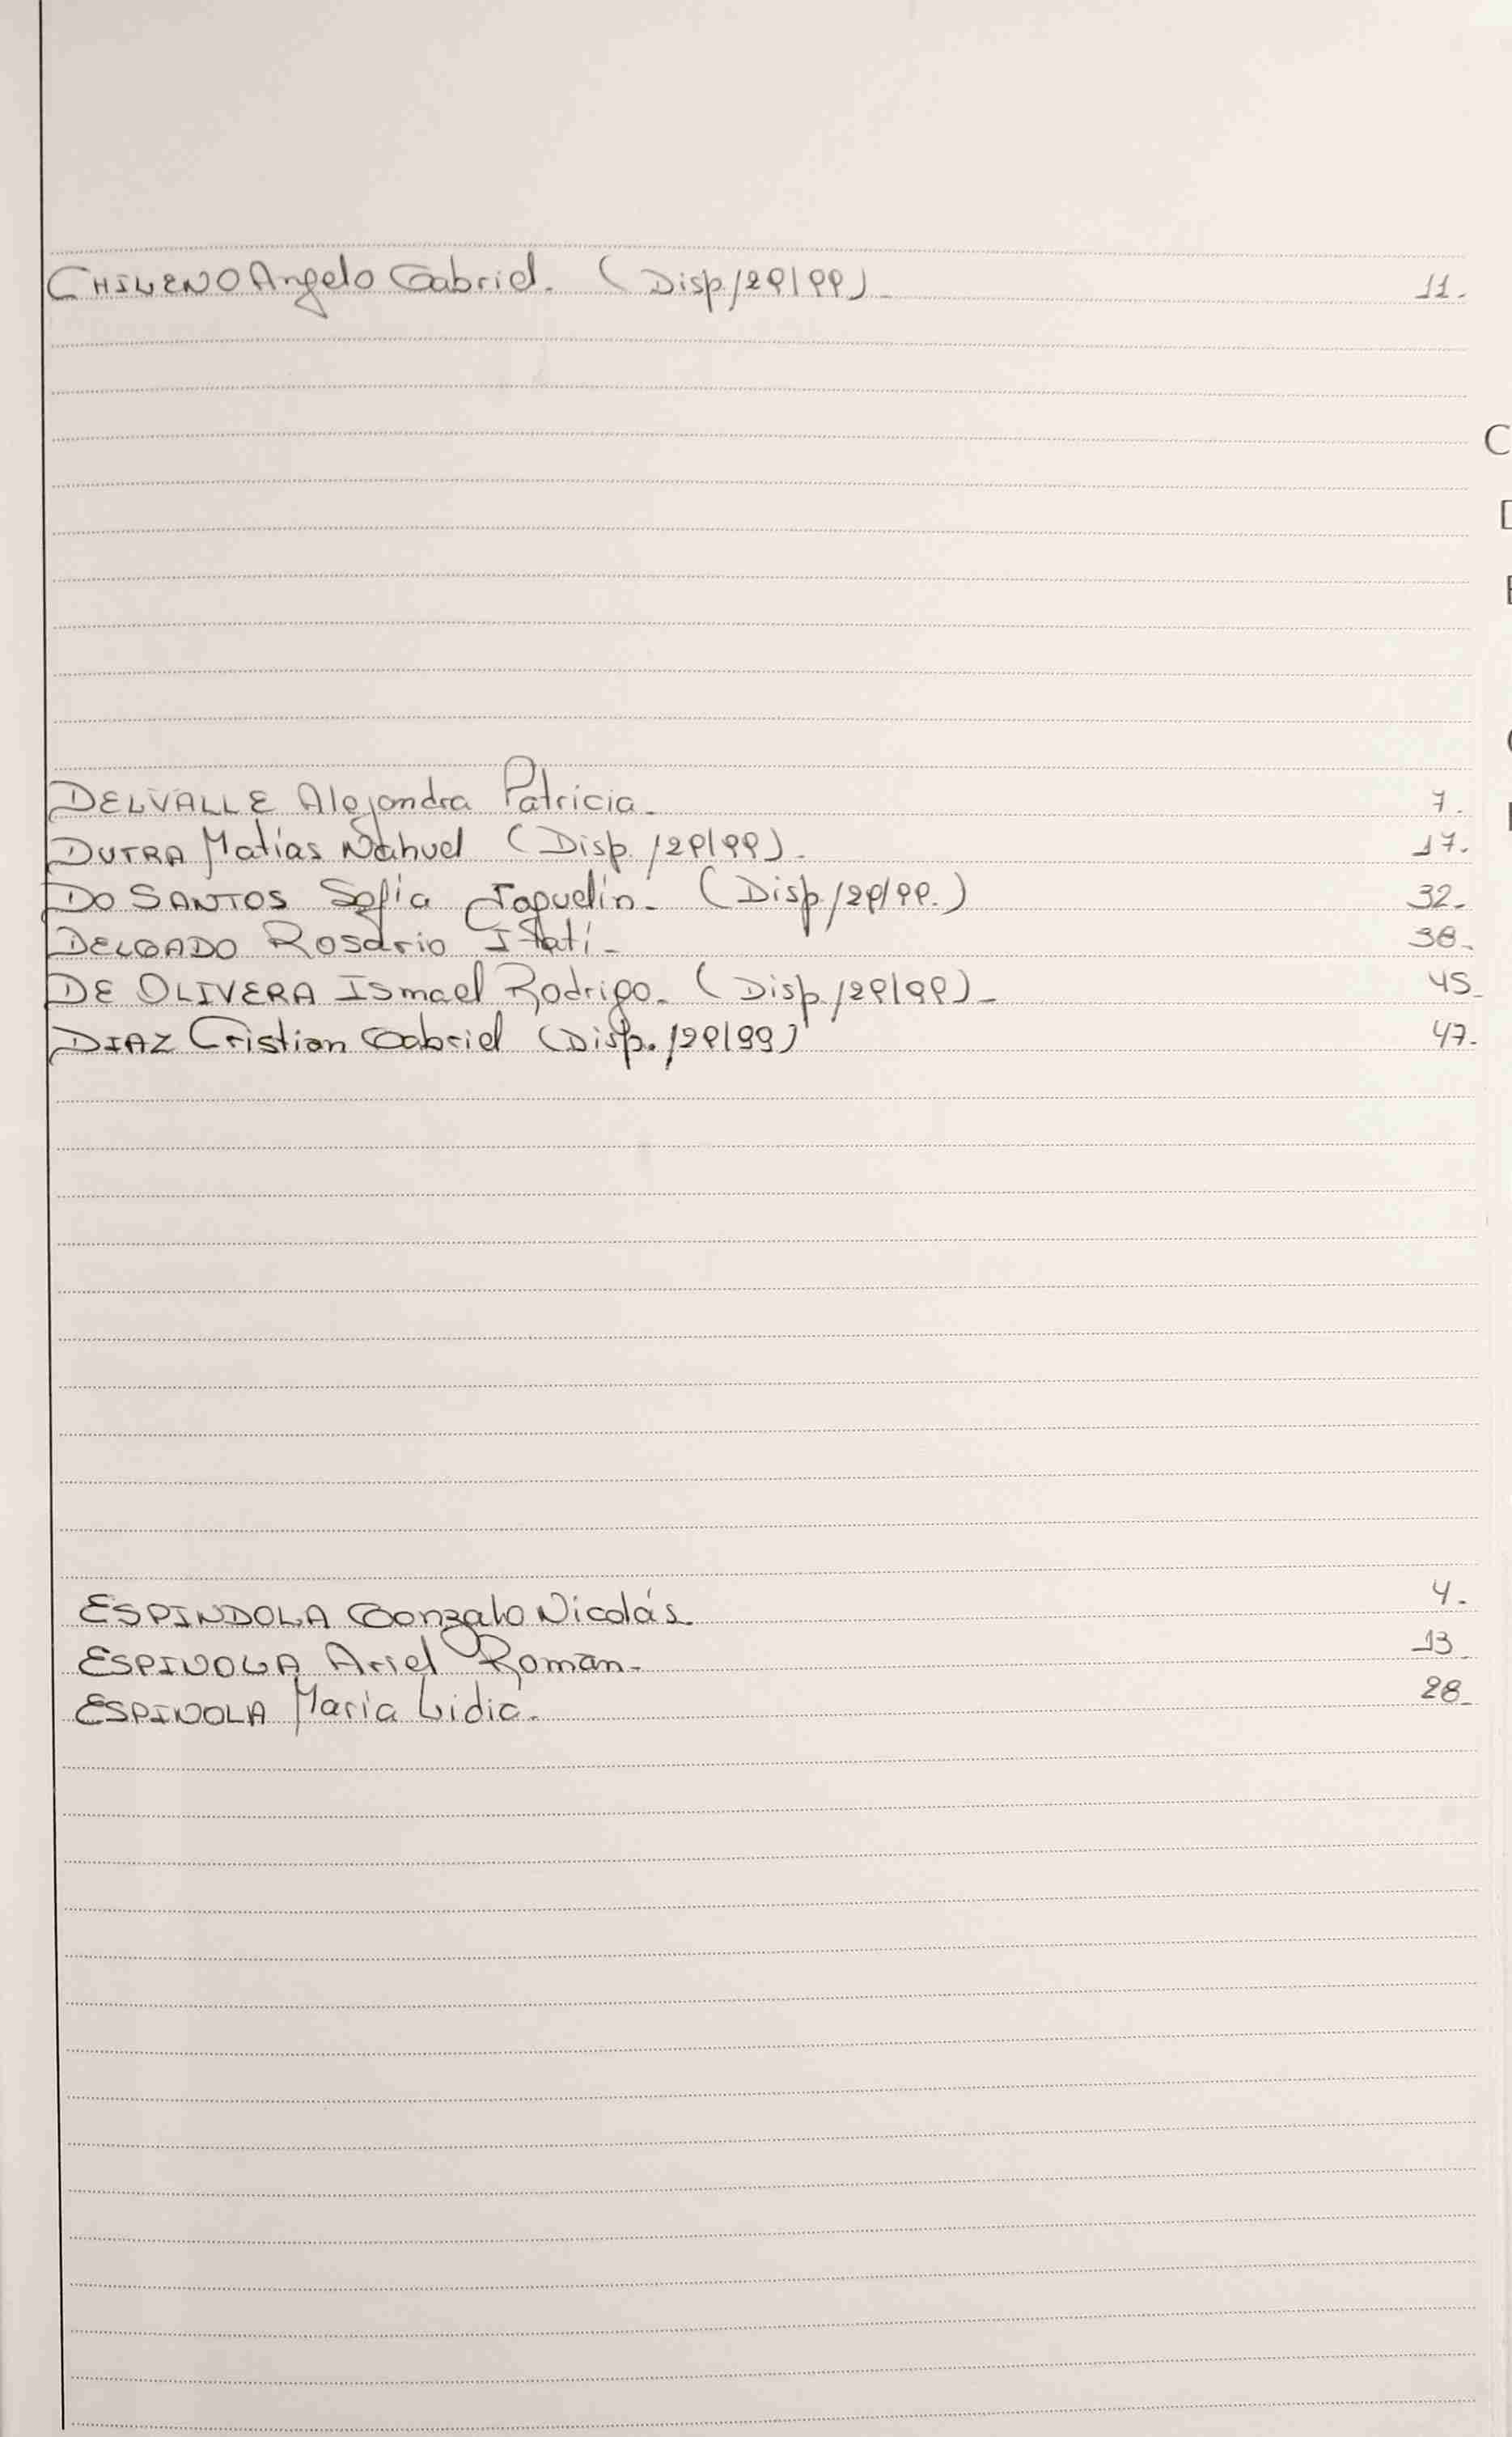 CHILENO Angelo Gabriel. (Disp/29/99)_ 11.
C
D
E
DELVALLE Alejandra Patricia_ 7.
DUTRA Matías Nahuel (Disp. /29/99)_ 17.
DO SANTOS Sofía Jaquelín_ (Disp/29/99.) 32_
DELGADO Rosario Itatí_ 38_
DE OLIVERA Ismael Rodrigo_ (Disp./29/99)_ 45_
DIAZ Cristian Gabriel (Disp. /29/99) 47_
ESPINDOLA Gonzalo Nicolás_ 4.
ESPINOLA Ariel Roman_ 13_
ESPINOLA María Lidia_ 28_